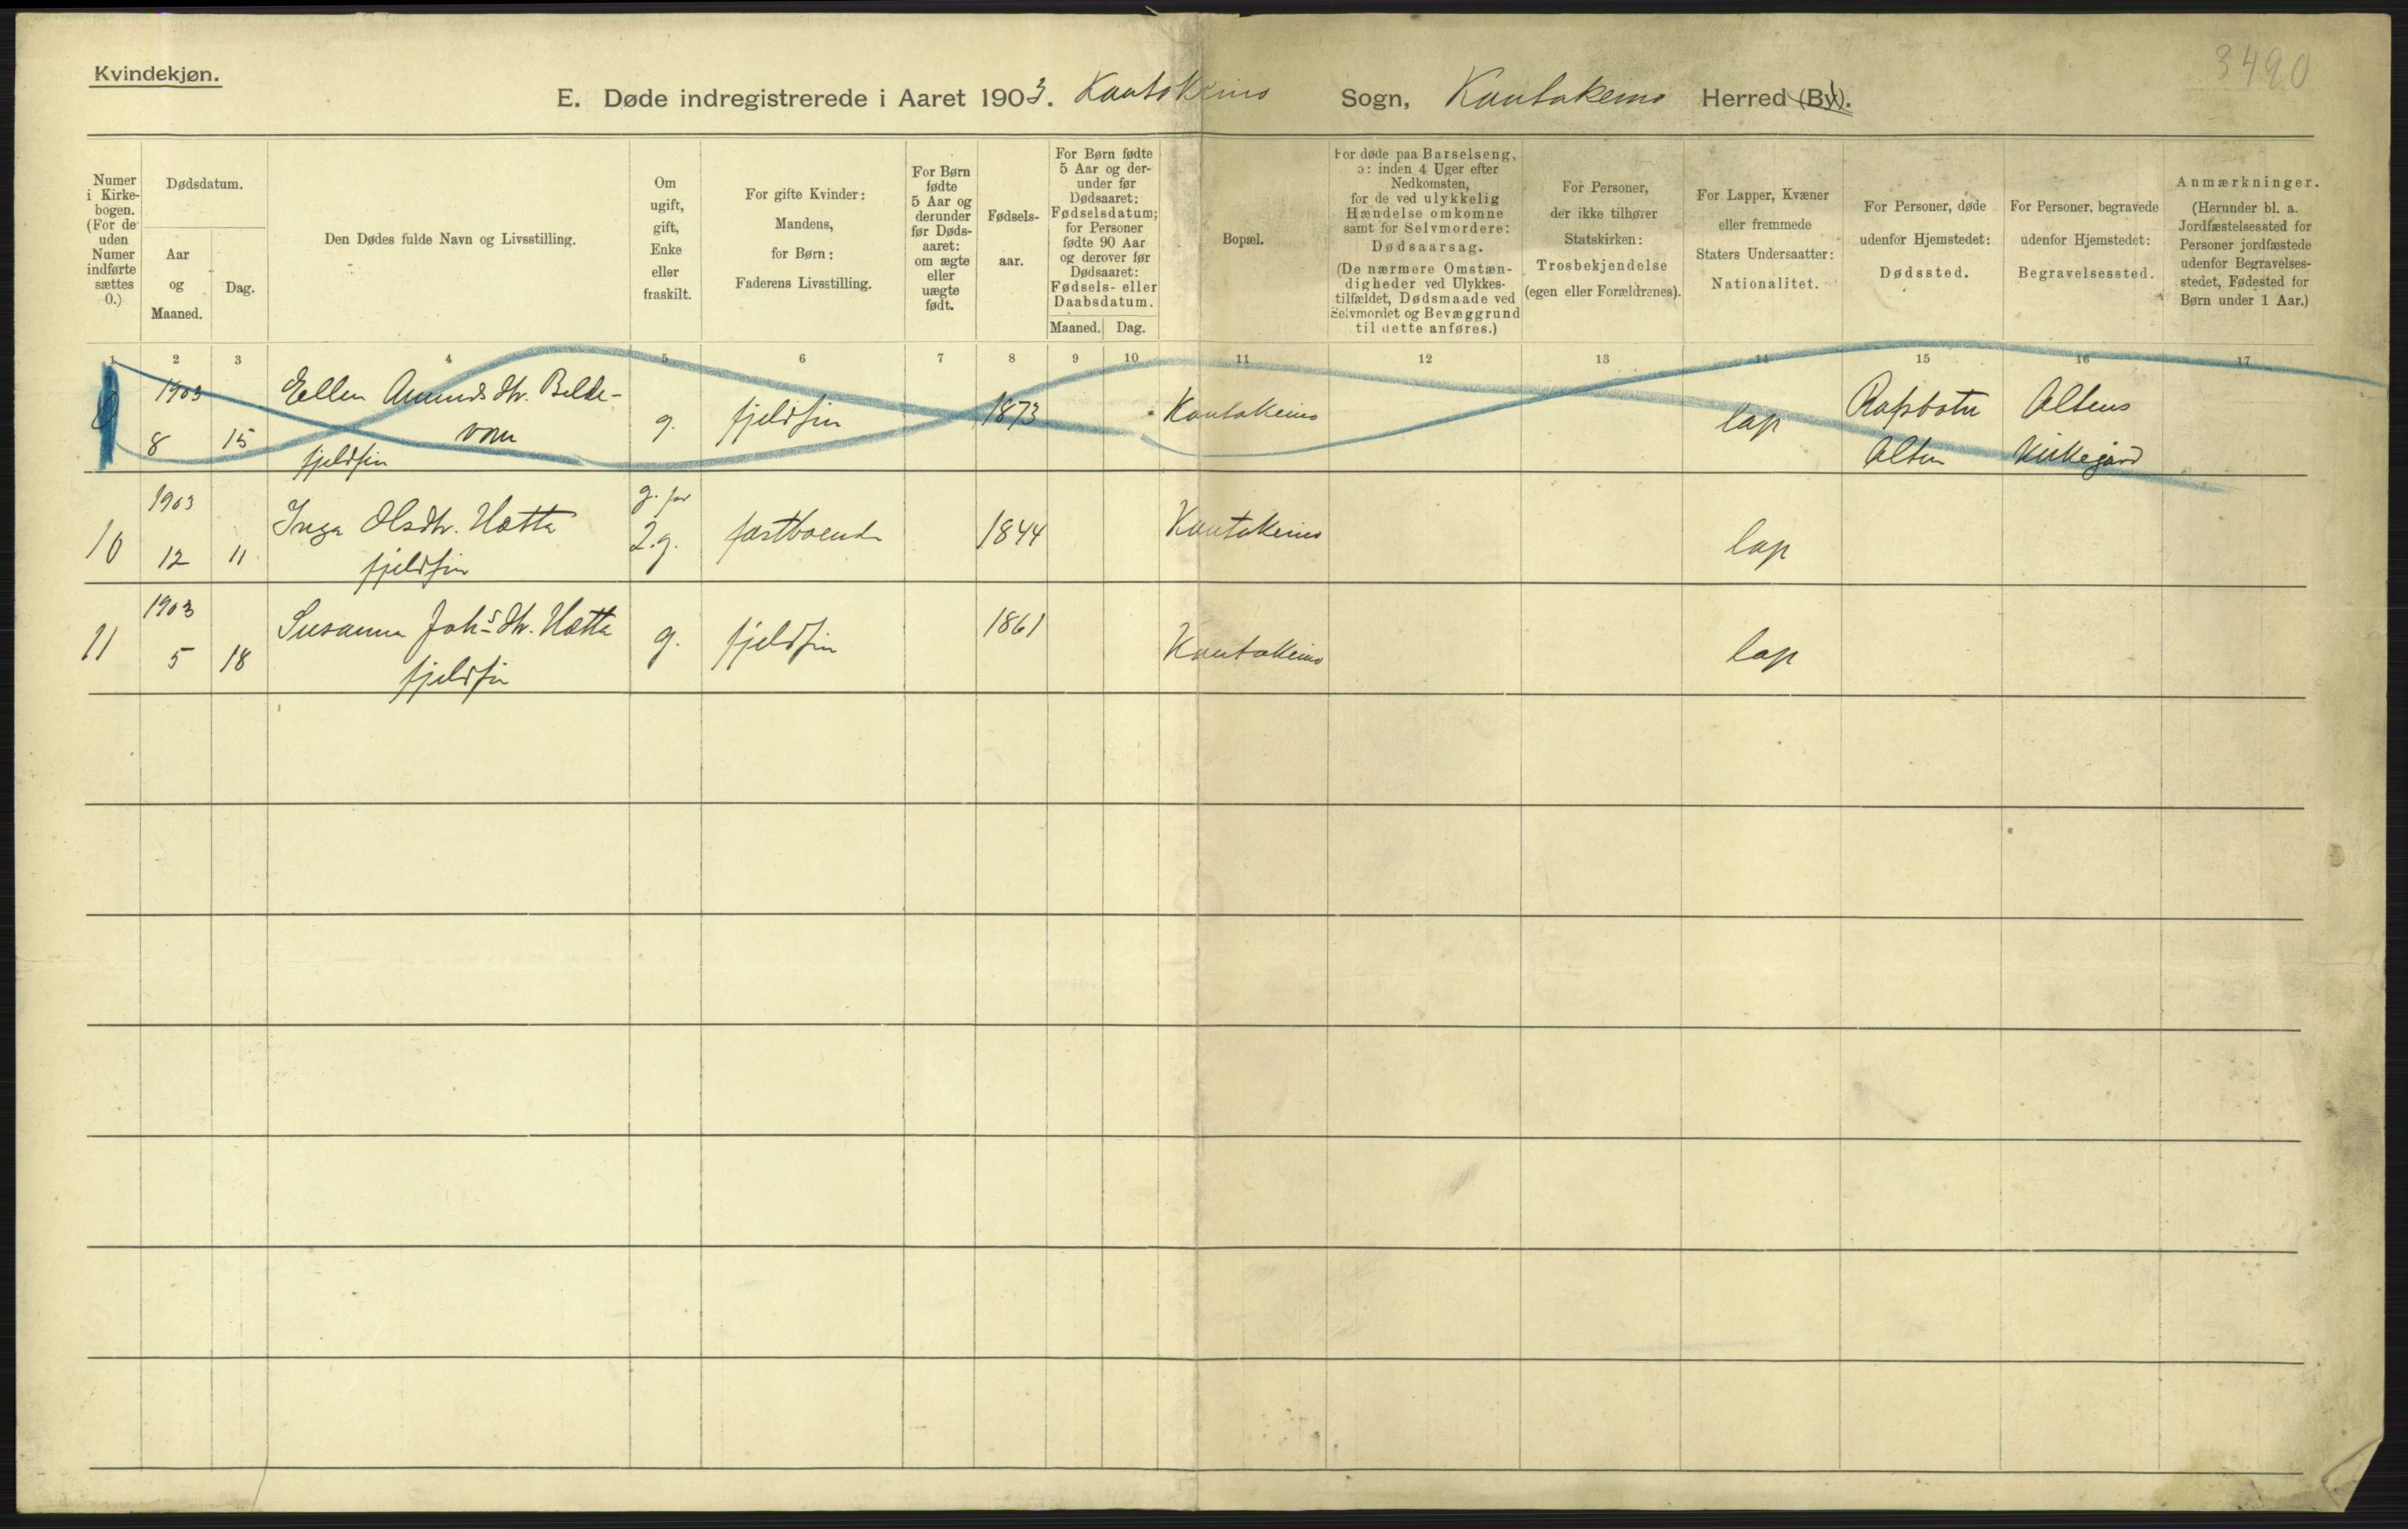 Kvindekjøn.
3490
E. Døde indregistrerede i Aaret 1903. Kautokeino Sogn, Kautokeino Herred (By).
Numer i Kirkebogen. (For de uden Numer indførte sættes 0.)
Dødsdatum.
Aar og Maaned.
Dag.
Den Dødes fulde Navn og Livsstilling.
Om ugift, gift, Enke eller fraskilt.
For gifte Kvinder: Mandens, for Børn: Faderens Livsstilling.
For Børn fødte 5 Aar og derunder før Dødsaaret: om ægte eller uægte født.
Fødselsaar.
For Børn fødte 5 Aar og derunder før Dødsaaret: Fødselsdatum; for Personer fødte 90 Aar og derover før Dødsaaret: Fødsels- eller Daabsdatum.
Maaned. Dag.
Bopæl.
For døde paa Barselseng, ɔ: inden 4 Uger efter Nedkomsten, for de ved ulykkelig Hændelse omkomne samt for Selvmordere: Dødsaarsag.
(De nærmere Omstændigheder ved Ulykkestilfældet, Dødsmaade ved Selvmordet og Bevæggrund til dette anføres.)
For Personer, der ikke tilhører Statskirken: Trosbekjendelse (egen eller Forældrenes).
For Lapper, Kvæner eller fremmede Staters Undersaatter: Nationalitet.
For Personer, døde udenfor Hjemstedet: Dødssted.
For Personer, begravede udenfor Hjemstedet: Begravelsessted.
Anmærkninger.
(Herunder bl. a. Jordfæstelsessted for Personer jordfæstede udenfor Begravelsesstedet, Fødested for Børn under 1 Aar.)
1 2 3 4 5 6 7 8 9 10 11 12 13 14 15 16 17
1903 Ellen Amundsdtr. Belde- Rafsbotn Altens
8 15 vom g. fjeldfin 1873 Kautokeino lap Alten Kirkegård
fjeldfin
1903 Inga Olsdtr. Hætta g. for
10 12 11 fjeldfin 2.g. fastboende 1844 Kautokeino lap
1903 Susanna Johsdtr. Hætta 1861
11 5 18 fjeldfin g. fjeldfin Kautokeino lap